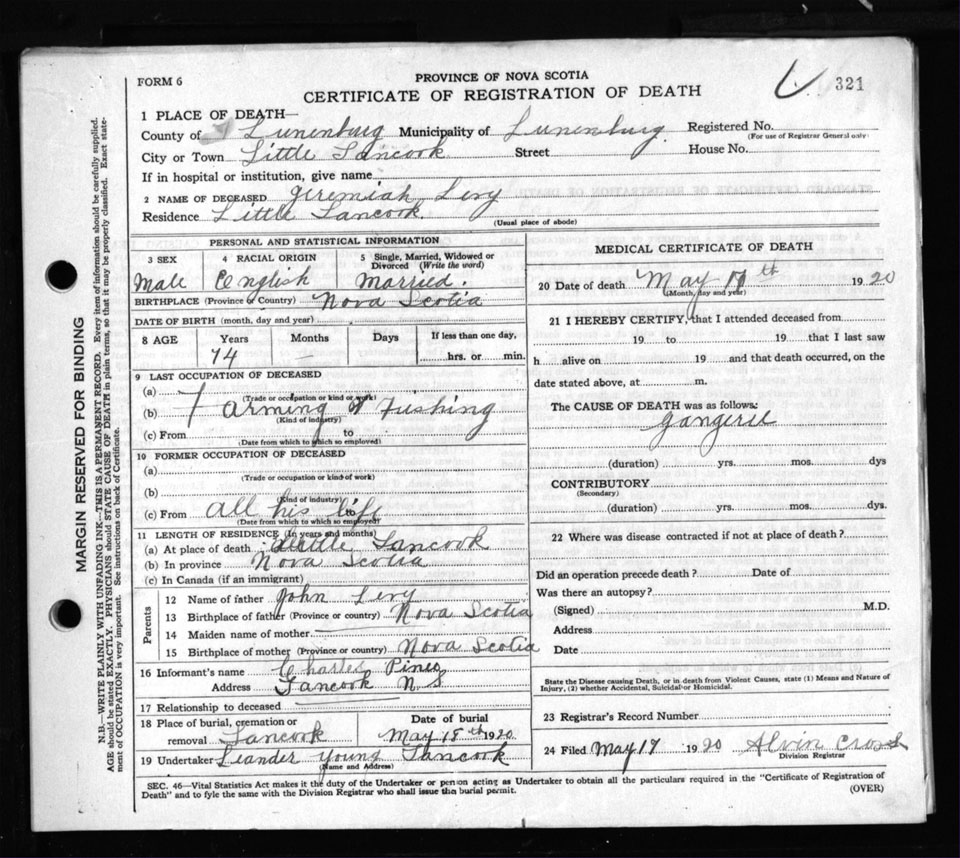 FORM 6
PROVINCE OF NOVA SCOTIA
CERTIFICATE OF REGISTRATION OF DEATH
321
1 PLACE OF DEATH—
County of Lunenburg Municipality of Lunenburg Registered No.
(For use of Registrar General only)
City or Town Little Tancook Street House No.
If in hospital or institution, give name
2 NAME OF DECEASED Jeremiah Levy
Residence Little Tancook
(Usual place of abode)
PERSONAL AND STATISTICAL INFORMATION
3 SEX 4 RACIAL ORIGIN 5 Single, Married, Widowed or Divorced (Write the word)
Male English Married.
BIRTHPLACE (Province or Country) Nova Scotia
DATE OF BIRTH (month, day and year)
8 AGE Years Months Days If less than one day,
74 — hrs. or min.
9 LAST OCCUPATION OF DECEASED
(a)
(Trade or occupation or kind of work)
(b) Farming & Fishing
(Kind of industry)
(c) From to
(Date from which to which so employed)
10 FORMER OCCUPATION OF DECEASED
(a)
(Trade or occupation or kind of work)
(b)
(Kind of industry)
(c) From all his life
(Date from which to which so employed)
11 LENGTH OF RESIDENCE (In years and months)
(a) At place of death Little Tancook
(b) In province Nova Scotia
(c) In Canada (if an immigrant)
Parents
12 Name of father John Levy
13 Birthplace of father (Province or country) Nova Scotia
14 Maiden name of mother
15 Birthplace of mother (Province or country) Nova Scotia
16 Informant's name Charles
Address Tancook N S
17 Relationship to deceased
18 Place of burial, cremation or removal Tancook
Date of burial
May 18th 1920
19 Undertaker Leander Young Tancook
(Name and Address)
MEDICAL CERTIFICATE OF DEATH
20 Date of death May 1920
(Month, day and year)
21 I HEREBY CERTIFY, that I attended deceased from
19 to 19 that I last saw
h alive on 19 and that death occurred, on the
date stated above, at m.
The CAUSE OF DEATH was as follows:
(duration) yrs. mos. dys
CONTRIBUTORY
(Secondary)
(duration) yrs. mos. dys.
22 Where was disease contracted if not at place of death?
Did an operation precede death? Date of
Was there an autopsy?
(Signed) M.D.
Address
Date
State the Disease causing Death, or in death from Violent Causes, state (1) Means and Nature of
Injury, (2) whether Accidental, Suicidal or Homicidal.
23 Registrar's Record Number
24 Filed May 1920 Alvin Cross
Division Registrar
SEC. 46—Vital Statistics Act makes it the duty of the Undertaker or person acting as Undertaker to obtain all the particulars required in the "Certificate of Registration of
Death" and to fyle the same with the Division Registrar who shall issue the burial permit.
(OVER)
MARGIN RESERVED FOR BINDING
N.B.—WRITE PLAINLY WITH UNFADING INK—THIS IS A PERMANENT RECORD. Every item of information should be carefully supplied.
AGE should be stated EXACTLY. PHYSICIANS should STATE CAUSE OF DEATH in plain terms, so that it may be properly classified. Exact state-
ment of OCCUPATION is very important. See instructions on back of Certificate.